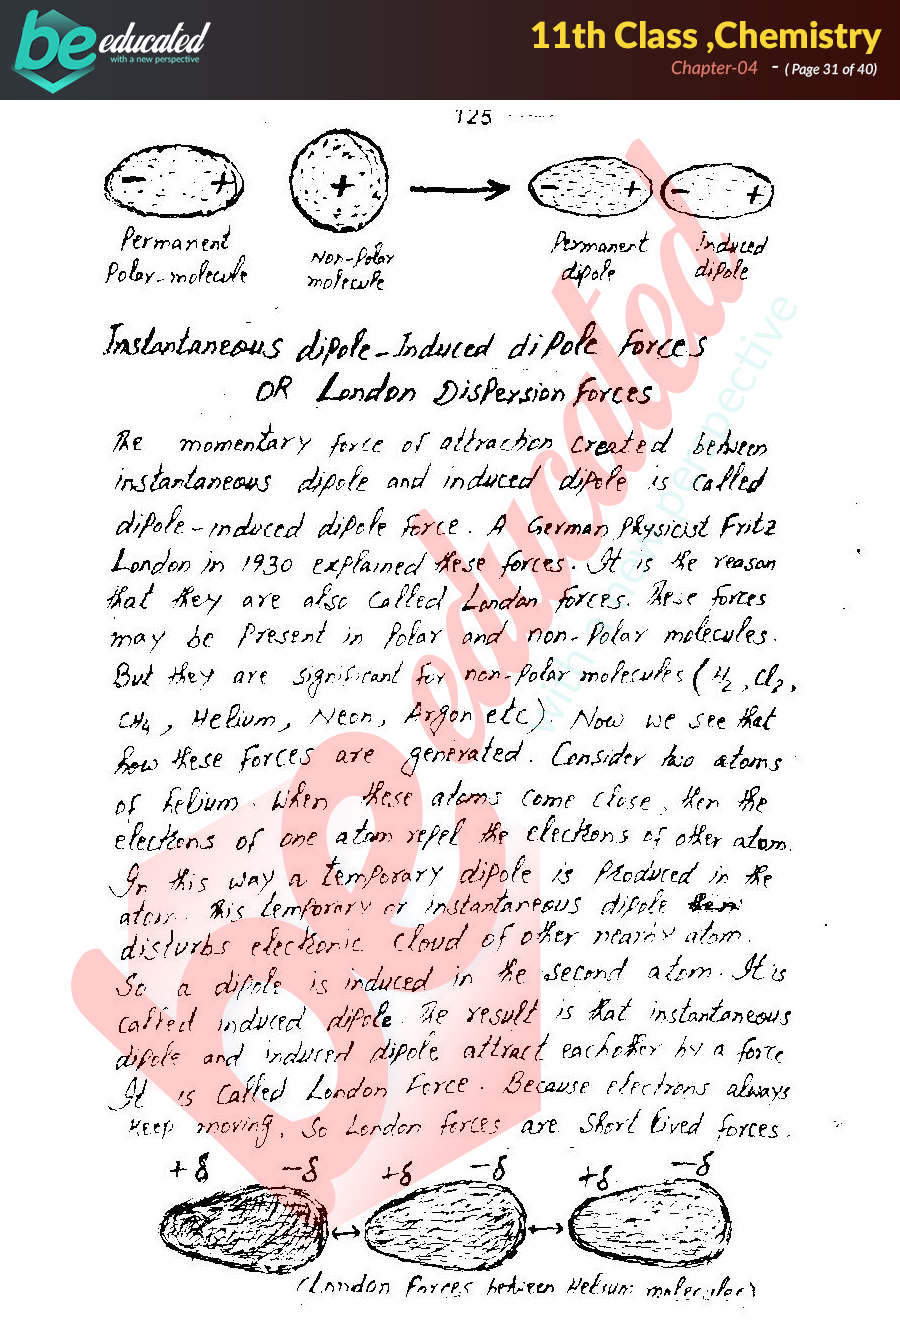 be educated
with a new perspective
11th Class ,Chemistry
Chapter-04 - ( Page 31 of 40)
125
- +
+
- +
- +
Permanent
Polar-molecule
Non-Polar
molecule
Permanent
dipole
Induced
dipole
Instantaneous dipole-Induced dipole Forces
OR London Dispersion Forces
The momentary force of attraction created between
instantaneous dipole and induced dipole is called
dipole-induced dipole force. A German Physicist Fritz
London in 1930 explained these forces. It is the reason
that they are also called London forces. These forces
may be Present in Polar and non-Polar molecules.
But they are significant for non-polar molecules (H2, Cl2,
CH4, Helium, Neon, Argon etc). Now we see that
how these forces are generated. Consider two atoms
of helium. When these atoms come close, then the
electrons of one atom repel the electrons of other atom.
In this way a temporary dipole is Produced in the
atom. This temporary or instantaneous dipole
disturbs electronic cloud of other nearby atom.
So a dipole is induced in the second atom. It is
called induced dipole. The result is that instantaneous
dipole and induced dipole attract eachother by a force
It is called London Force. Because electrons always
keep moving, so London forces are short lived forces.
+δ -δ +δ -δ +δ -δ
(London Forces between Helium molecules)
be educated
with a new perspective